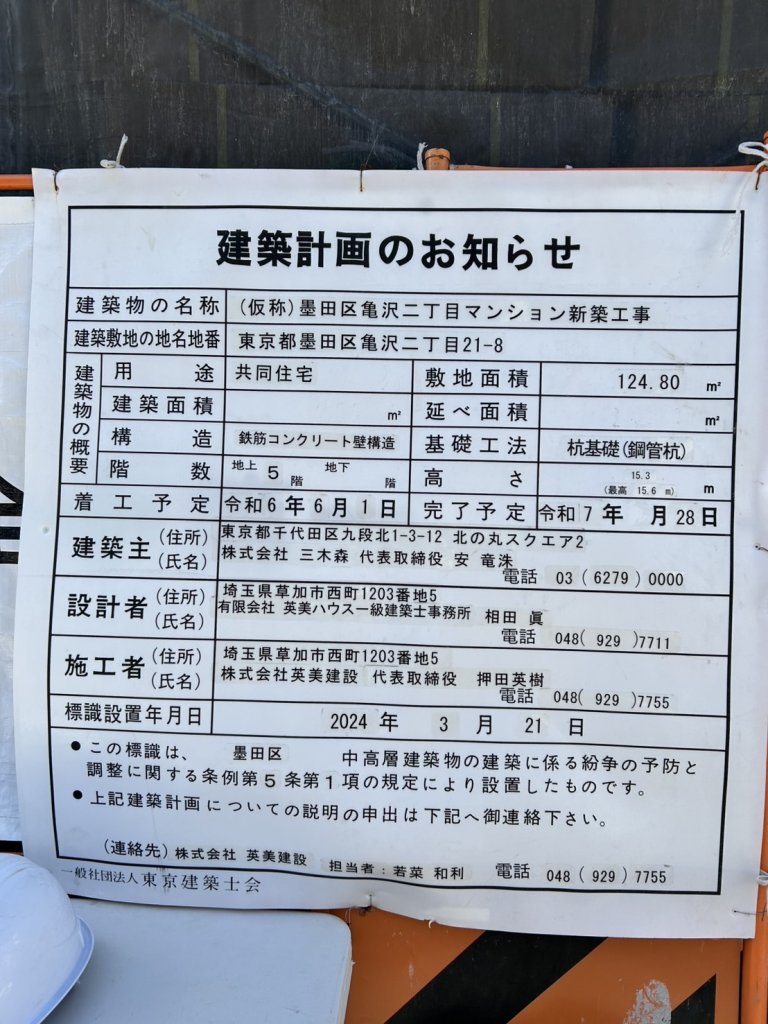 建築計画のお知らせ
建築物の名称 (仮称)墨田区亀沢二丁目マンション新築工事
建築敷地の地名地番 東京都墨田区亀沢二丁目21-8
建築物の概要
用途 共同住宅 敷地面積 124.80 ㎡
建築面積 ㎡ 延べ面積 ㎡
構造 鉄筋コンクリート壁構造 基礎工法 杭基礎(鋼管杭)
階数 地上 5 階 地下 階 高さ 15.3 (最高 15.6 m) m
着工予定 令和6年6月1日 完了予定 令和7年 月28日
建築主 (住所) 東京都千代田区九段北1-3-12 北の丸スクエア2
(氏名) 株式会社 三木森 代表取締役 安 竜洙
電話 03 (6279) 0000
設計者 (住所) 埼玉県草加市西町1203番地5
(氏名) 有限会社 英美ハウス一級建築士事務所 相田 眞
電話 048( 929 )7711
施工者 (住所) 埼玉県草加市西町1203番地5
(氏名) 株式会社英美建設 代表取締役 押田英樹
電話 048( 929 )7755
標識設置年月日 2024 年 3 月 21 日
●この標識は、 墨田区 中高層建築物の建築に係る紛争の予防と
調整に関する条例第5条第1項の規定により設置したものです。
●上記建築計画についての説明の申出は下記へ御連絡下さい。
(連絡先) 株式会社 英美建設 担当者:若菜 和利 電話 048 ( 929 ) 7755
一般社団法人東京建築士会